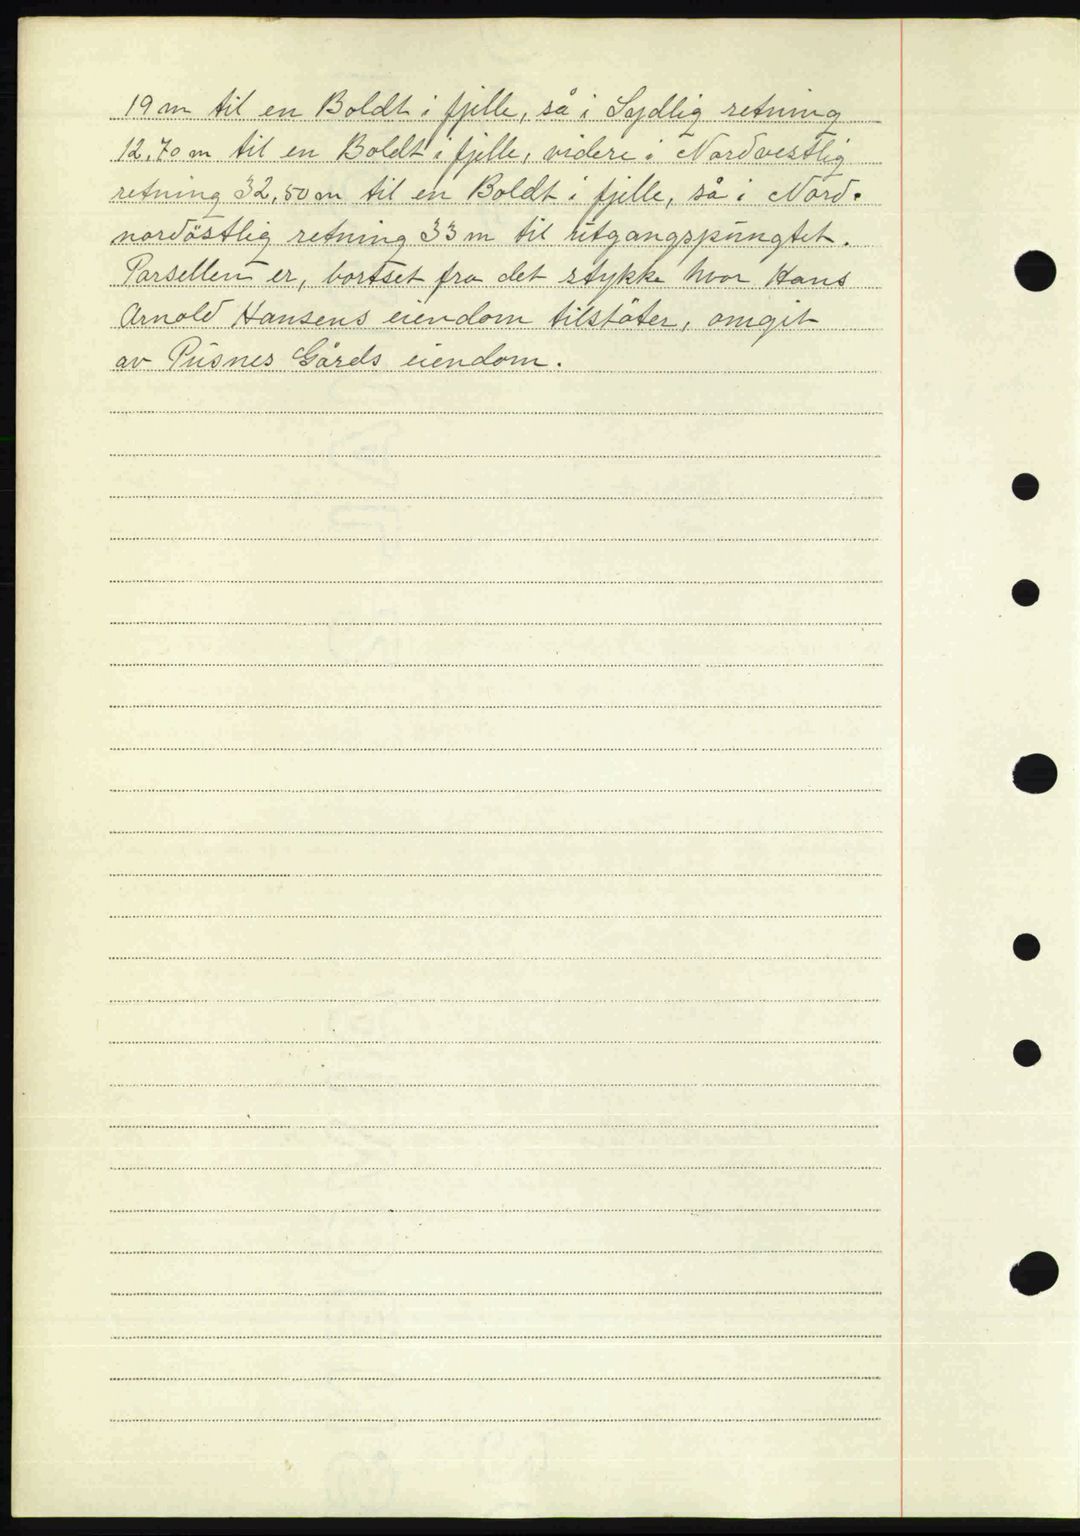 19 m til en Boldt i fjelle, så i Sydlig retning
12,70 m til en Boldt i fjelle, videre i Nordvestlig
retning 32,50 m til en Boldt i fjelle, så i Nord.
nordöstlig retning 33 m til utgangspungtet.
Parsellen er, bortset fra det stykke hvor Hans
Arnold Hansens eiendom tilstöter, omgit
av Pusnes Gårds eiendom.